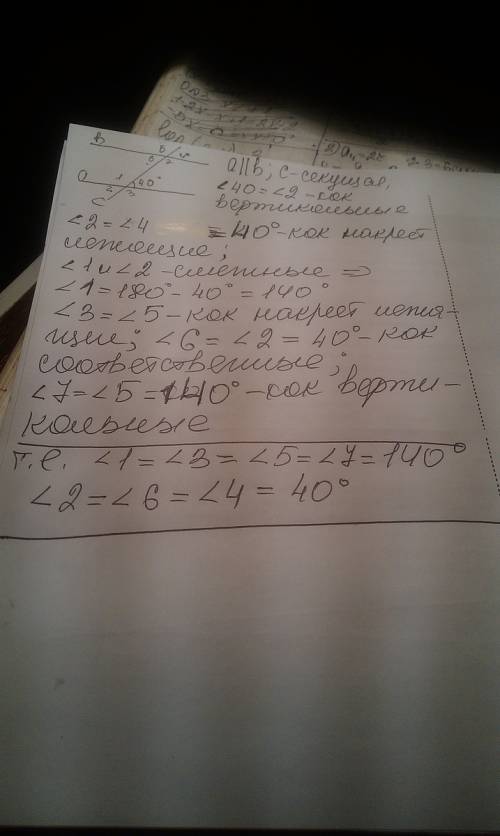 b
a
1 40°
2 3
c
a||b; c-секущая,
∠40=∠2-как
вертикальные
∠2=∠4 =40°-как накрест
лежащие;
∠1 и ∠2-смежные =>
∠1=180°-40°=140°
∠3=∠5-как накрест лежа-
щие; ∠6=∠2=40°-как
соответственные;
∠7=∠5=140°-как верти-
кальные
т.е. ∠1=∠3=∠5=∠7=140°
∠2=∠6=∠4=40°